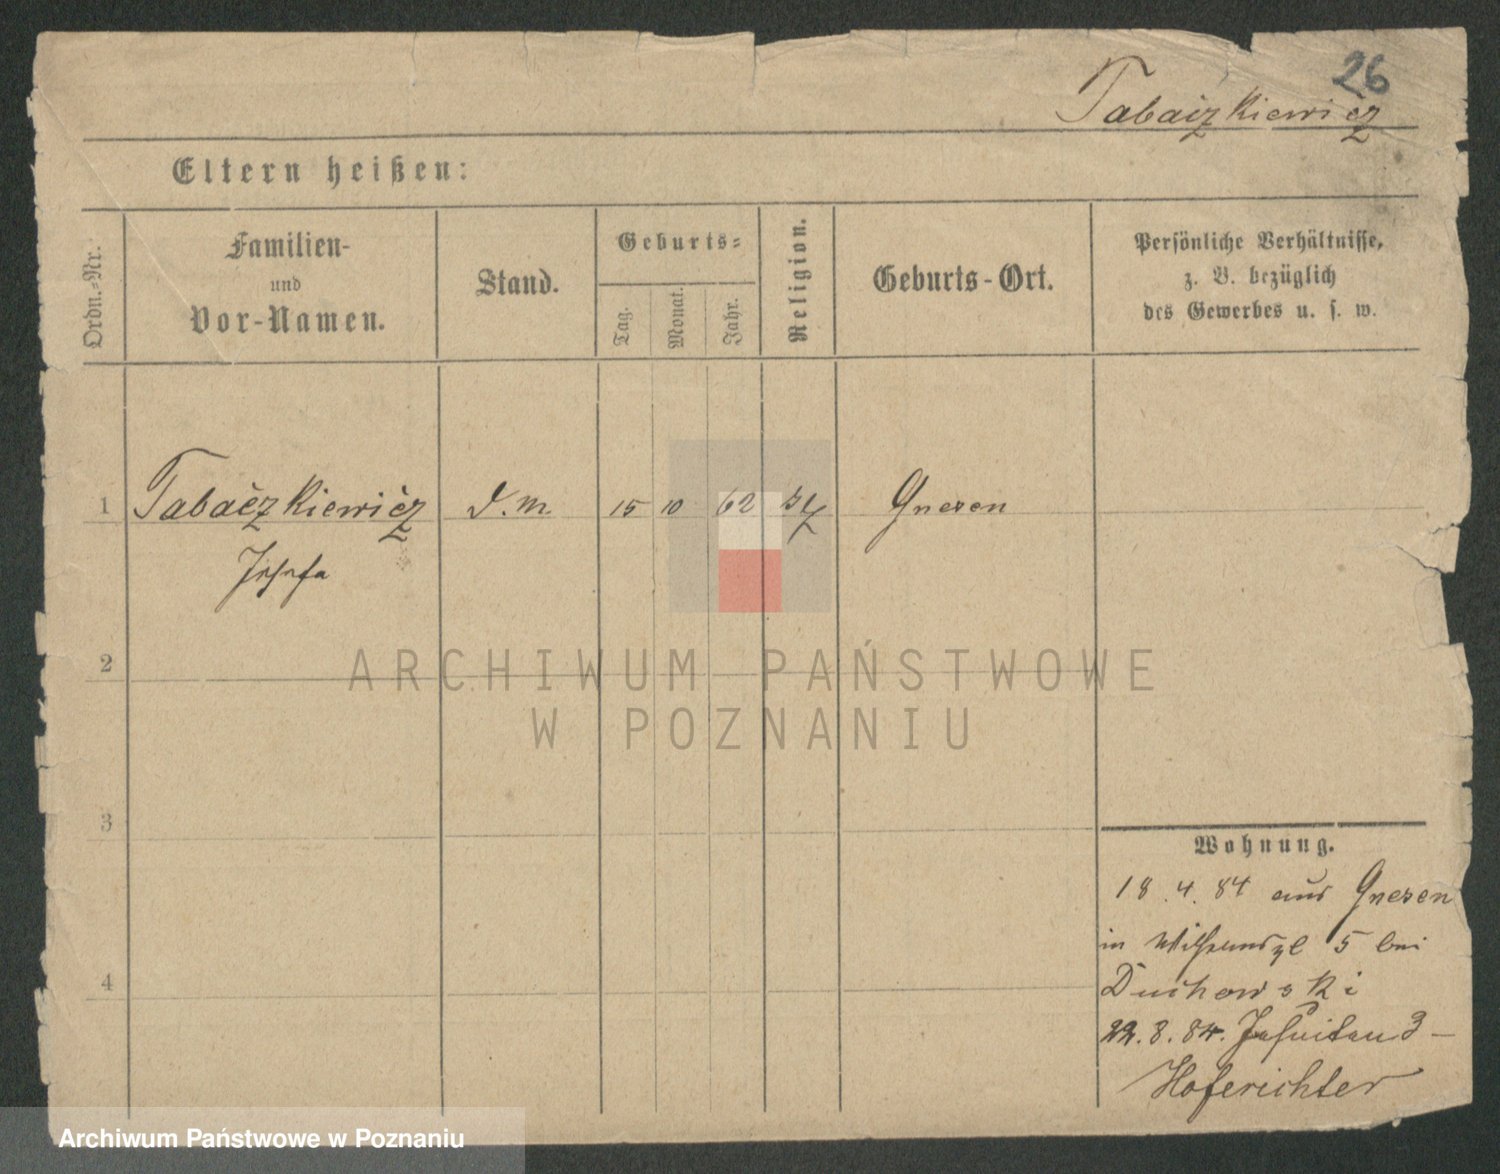 26
Tabaczkiewicz
Eltern heißen:
Ordn.-Nr.
Familien-
und
Vor-Namen.
Stand.
Geburts-
Tag.
Monat.
Jahr.
Religion.
Geburts-Ort.
Persönliche Verhältnisse,
z. B. bezüglich
des Gewerbes u. s. w.
1 Tabaczkiewicz D. m. 15 10 62 Gnesen
Josefa
2
ARCHIWUM PAŃSTWOWE
W POZNANIU
3
4
Wohnung.
18.4.84 aus Gnesen
in Wilhelmspl 5 bei
Duchowski
22.8.84. Jesuiten 3 –
Hoferichter
Archiwum Państwowe w Poznaniu